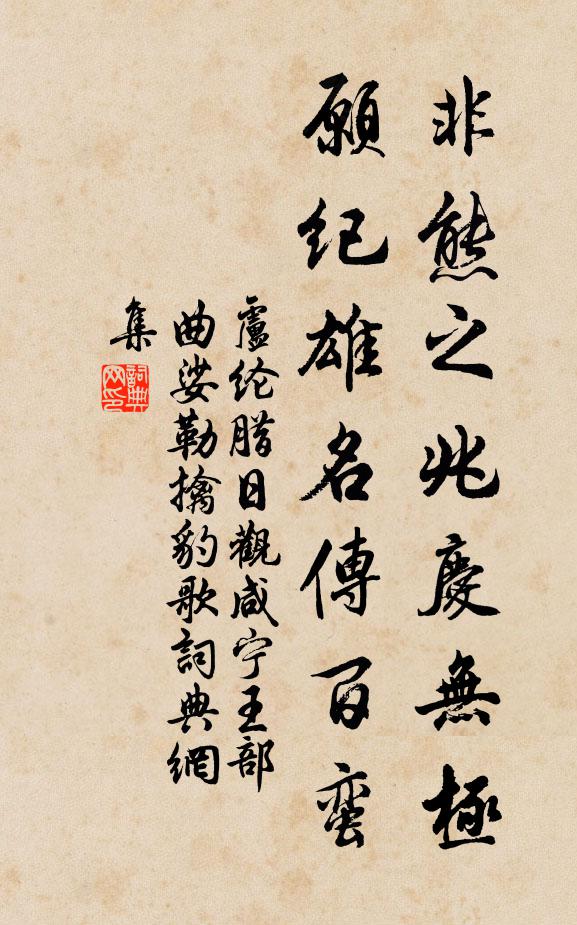 非熊之兆慶無極
願紀雄名傳百蛮
盧纶腊日觀咸宁王部
曲娑勒擒豹歌詞典網
集
詞典
网印